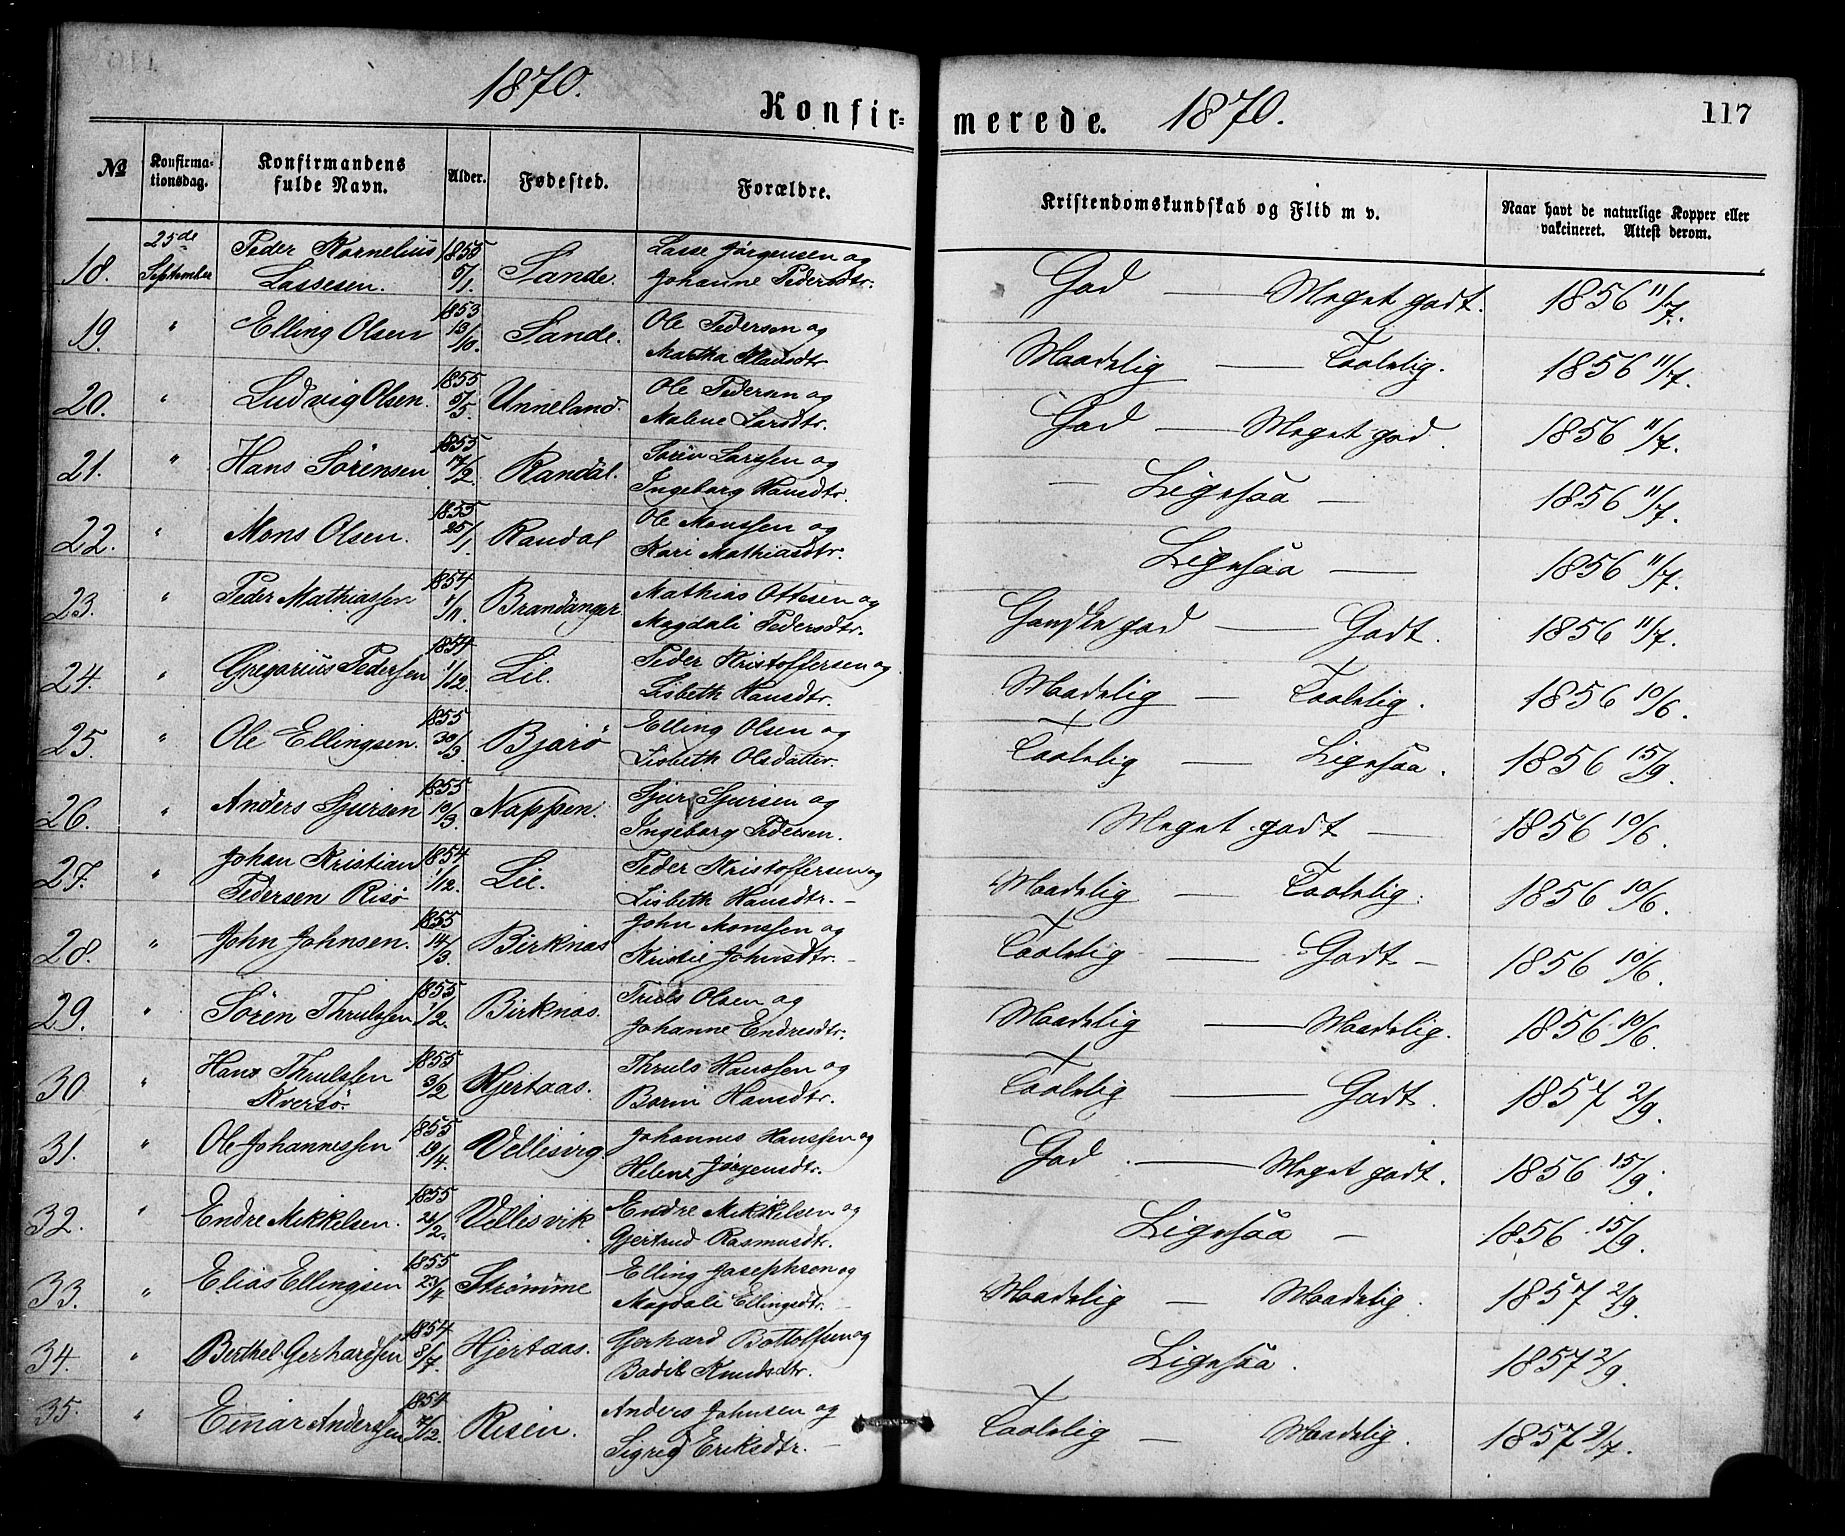 1870.
Konfir=
merede.
1870.
117
№
Konfirma-
tionsdag.
Konfirmandens
fulde Navn.
Alder.
Fødested.
Forældre.
Kristendomskundskab og Flid m v.
Naar havt de naturlige Kopper eller
vakcineret. Attest derom.
18. 25de September Peder Kornelius Lassesen. 1855 5/1. Sande. Lasse Jørgensen og Johanne Pedersdtr. God — Meget godt. 1856 11/7.
19. " Elling Olsen 1853 13/10. Sande. Ole Pedersen og Martha Klausdtr. Maadelig — Taalelig. 1856 11/7.
20. " Ludvig Olsen. 1855 5/5. Unneland. Ole Pedersen og Malene Larsdtr. God — Meget god. 1856 11/7.
21. " Hans Sörensen 1855 /2. Randal. Sören Larssen og Ingeborg Hansdtr. — Ligesaa — 1856 11/7.
22. " Mons Olsen. 1855 25/1. Randal Ole Monssen og Kari Mathiasdtr. Ligesaa — 1856 11/7.
23. " Peder Mathiassen 1854 1/11. Brandanger Mathias Ottesen og Magdali Pedersdtr. Ganske god — Godt. 1856 11/7.
24. " Gregorius Pederssen 1854 1/12. Lie. Peder Kristoffersen og Lisbeth Hansdtr. Maadelig — Taalelig. 1856 10/6.
25. " Ole Ellingsen. 1855 30/3. Bjarö Elling Olsen og Lisbeth Olsdatter. Taalelig — Ligesaa. 1856 15/9.
26. " Anders Sjursen 1855 19/3. Nappen. Sjur Sjursen og Ingeborg Pedersen. Meget godt — 1856 10/6.
27. " Johan Kristian Pedersen Risö 1854 1/12. Lie. Peder Kristoffersen og Lisbeth Hansdtr. — Maadelig — Taalelig. 1856 10/6.
28. " John Johnsen. 1855 14/3. Birknas John Monssen og Kristie Johnsdtr. — Taalelig — Godt — 1856 10/6.
29. " Sören Thrulssen 1855 1/2. Birknas. Truls Olsen og Johanne Endresdtr. Maadelig — Maadelig. 1856 10/6.
30. " Hans Thrulssen Kversö. 1855 3/2 Hjertaas. Thruls Hanssen og Barni Hansdtr. Taalelig — Godt. 1857 2/9.
31. " Ole Johannessen 1855 19/4. Vellesvig Johannes Hanssen og Helene Jörgensdtr. God. — Meget godt. 1856 15/9.
32. " Endre Mikkelsen. 1855 26/2. Vellesvik. Endre Mikkelsen og Gjertrud Rasmusdtr. Ligesaa — 1856 15/9.
33. " Elias Ellingsen 1855 23/4 Strömme Elling Josephsen og Magdali Ellingsdtr. — Maadelig — Maadelig. 1857 2/9.
34. " Berthel Gerhardsen 1854 8/7. Hjertaas. Gerhard Bottolfsen og Bodil Knudsdtr. Ligesaa. 1857 2/9.
35. " Einar Anderssen 1854 /12. Risen. Anders Johnsen og Sigrid Eriksdtr. — Taalelig — Maadelig. 1857 2/7.